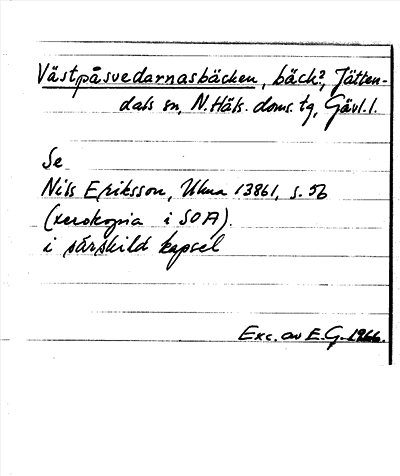 Västpåsvedarnasbäcken, bäck?, Jätten-
dals sn, N. Häls. doms. tg, Gävl. l.
Se
Nils Eriksson, Ulma 13861, s. 56
(xerokopia i SOA).
i särskild kapsel
Exc. av E.G. 1966.